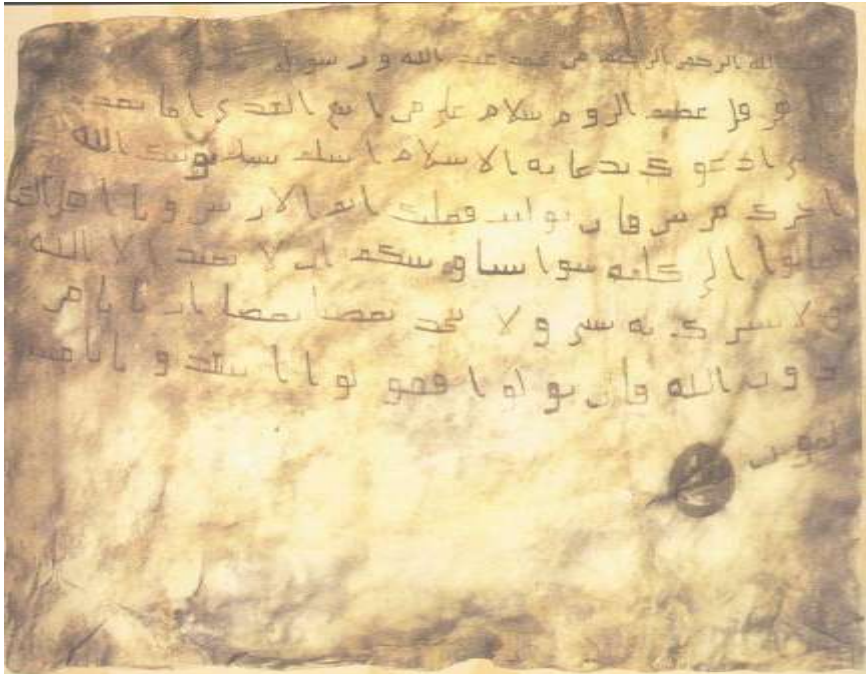 بسم الله الرحمن الرحيم من محمد عبد الله و رسوله
الى هر قل عظيم الروم سلام على من اتبع الهدى اما بعد
فانى ادعو ك بدعا يه الا سلام اسلم تسلم يوتك الله
اجرك مر تين فا ن توليت فعليك اثم الار يسين و يا اهل الك
تعالوا الى كلمه سوا بيننا و بينكم ان لا نعبد الا الله
و لا نشر ك به شى و لا بعضنا بعضا ار با با من
د و ن الله فان تو لو ا فقو لو ا ا شهد و ا با نا مس
لمون